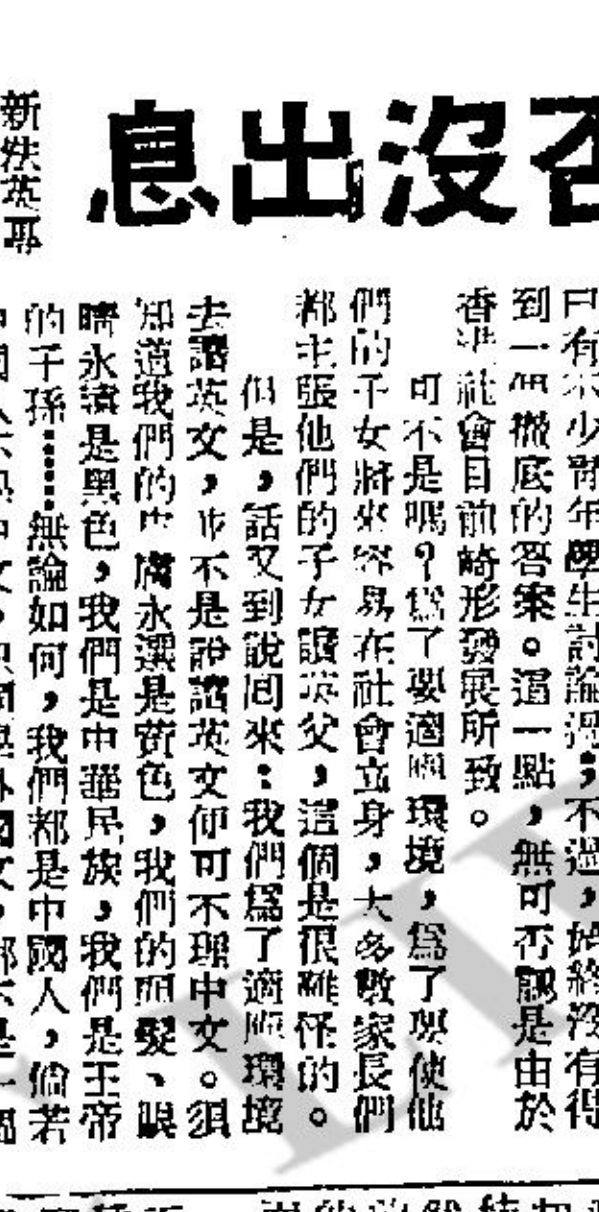 否沒出息
新法英專
已有不少青年學生討論過；不過，始終沒有得
到一個徹底的答案。這一點，無可否認是由於
香港社會目前畸形發展所致。
可不是嗎？為了要適應環境，為了要使他
們的子女將來容易在社會立身，大多數家長們
都主張他們的子女讀英文，這個是很難怪的。
但是，話又到說回來：我們為了適應環境
去讀英文，並不是說讀英文便可不理中文。須
知道我們的皮膚永遠是黃色，我們的頭髮、眼
睛永遠是黑色，我們是中華民族，我們是王帝
的子孫……無論如何，我們都是中國人，倘若